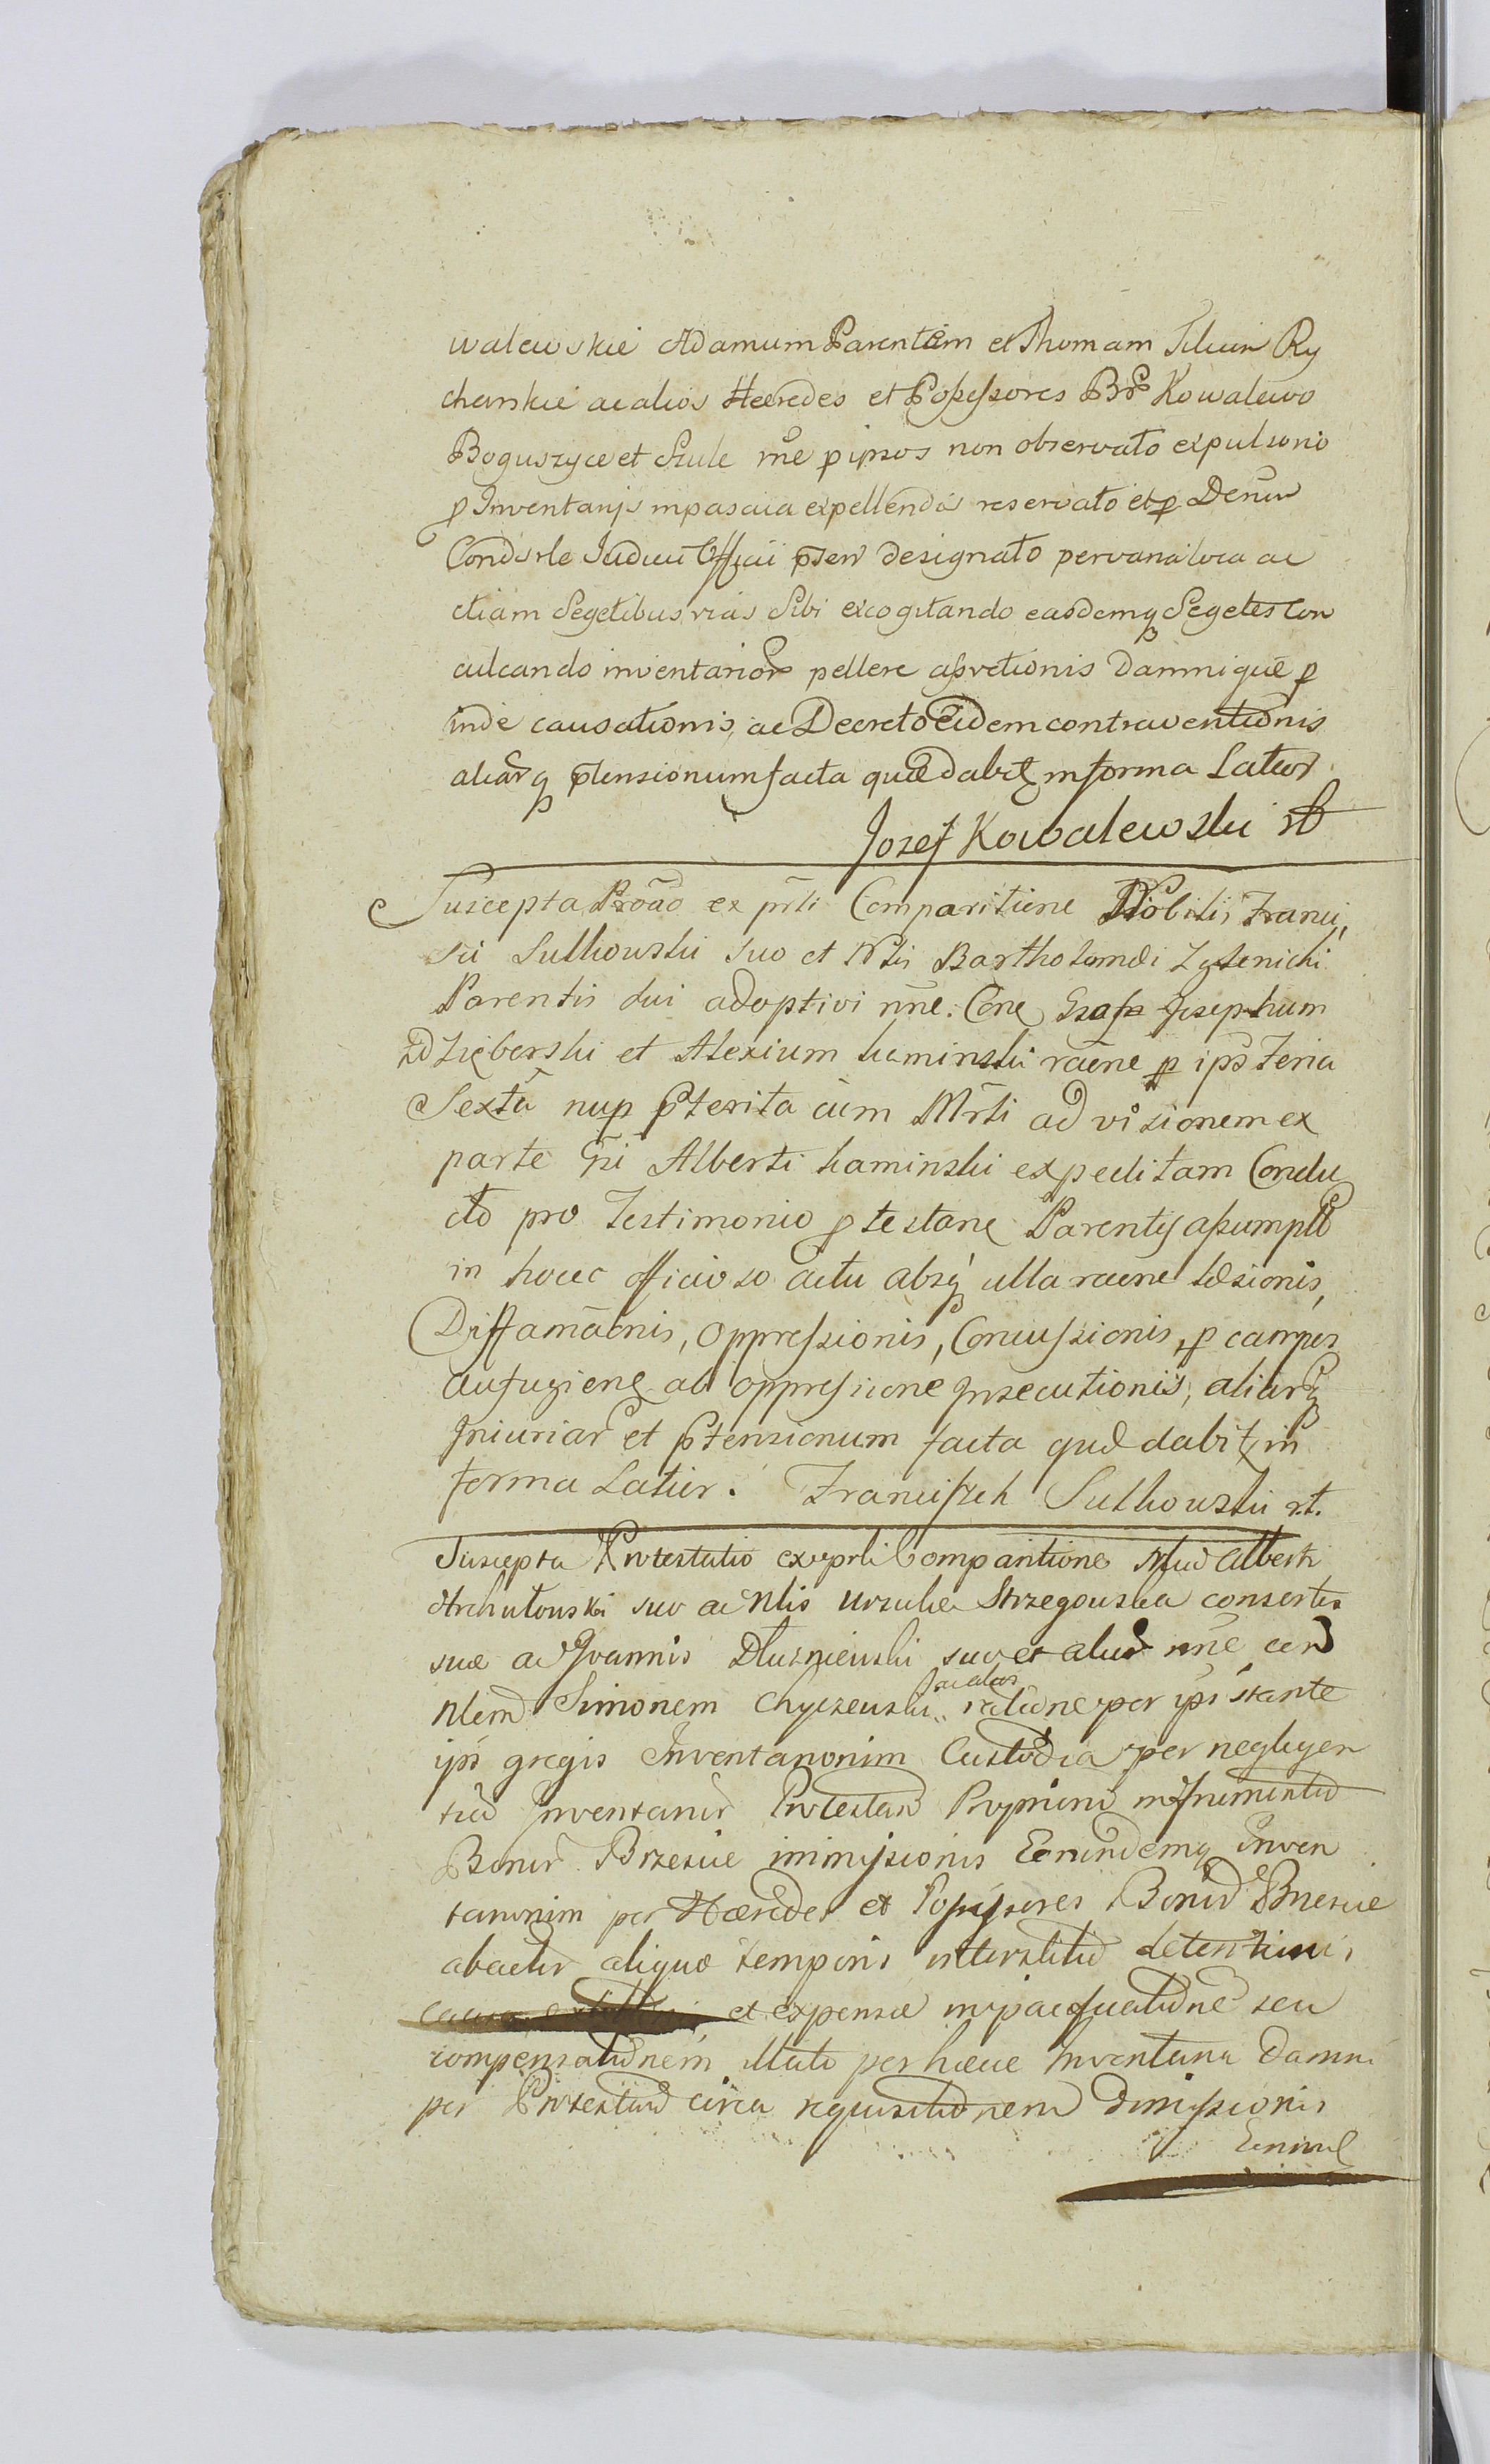 walewskie Adamum Parentem et Thomam Filium Ry
charskie ac alios Heeredes et Possessores Br̃ Kowalewo
Boguszyce et Szule rñe p ipsos non observato expulsorio
p Inventarijs in pascua expellendis reservato et p Decr̃m
Condesc̃le Judicii Officii p̃sen designato per vana loca ac
etiam Segetibus vias Sibi excogitando easdemq Segetes con
culcando inventarior pellere assvetionis damnique p
inde causationis, ac Decreto Eidem contraventionis
aliarq p̃tensionum facta quæ dabit in forma Latior
Jozef Kowalewski st
Suscepta Pro͠ao ex pr̃li Comparitione Nobilis Franci,
sci Sutkowski suo et Nlis Bartholomæi Zglenicki
Parentis sui adoptivi ñne. Cone Gr̃osos Josephum
Zdzięborski et Alexium kaminski raẽne p ips̃ Feria
Sexta nup p̃terita cum Mr̃li ad visionem ex
parte Gñi Alberti kaminski expeditam Condu
cto pro Testimonio p testane Parentis assumpto
in hocce officioso actu absq ulla raene læsionis,
Diffamãonis, Oppressionis, Concussionis, p campos
aufugiene ab oppressione Insecutionis, aliarq
Iniuriar et p̃tensionum facta quæ dabit in
forma Latior. Franciszek Sutkowski st.
Suscepta Protestatio ex prli Comparitione Nliũ Alberti
Archutowski suo ac Nlis Ursulæ Strzegowska consortis
suæ ac Joannis Dłuzniewski suo et alior ñne con
Nlem Simonem Chyczewski Sacalar ratione per ips̃ stante
ips̃ gregis Inventariorum Custodia per negligen
tiã Inventarior Protestan Propriorũ in frumentis
Bonor Brzescie immissionis Eorundemq Inven
tariorum per Hæredes et Possessores Bonor Brzescie
abactor aliquo temporis interstitio detentionis
et expensæ in pacificatione seu
compensationem illati per hæcce Inventaria Damni
per Protestan circa requisitionem dimissionis
Eorund